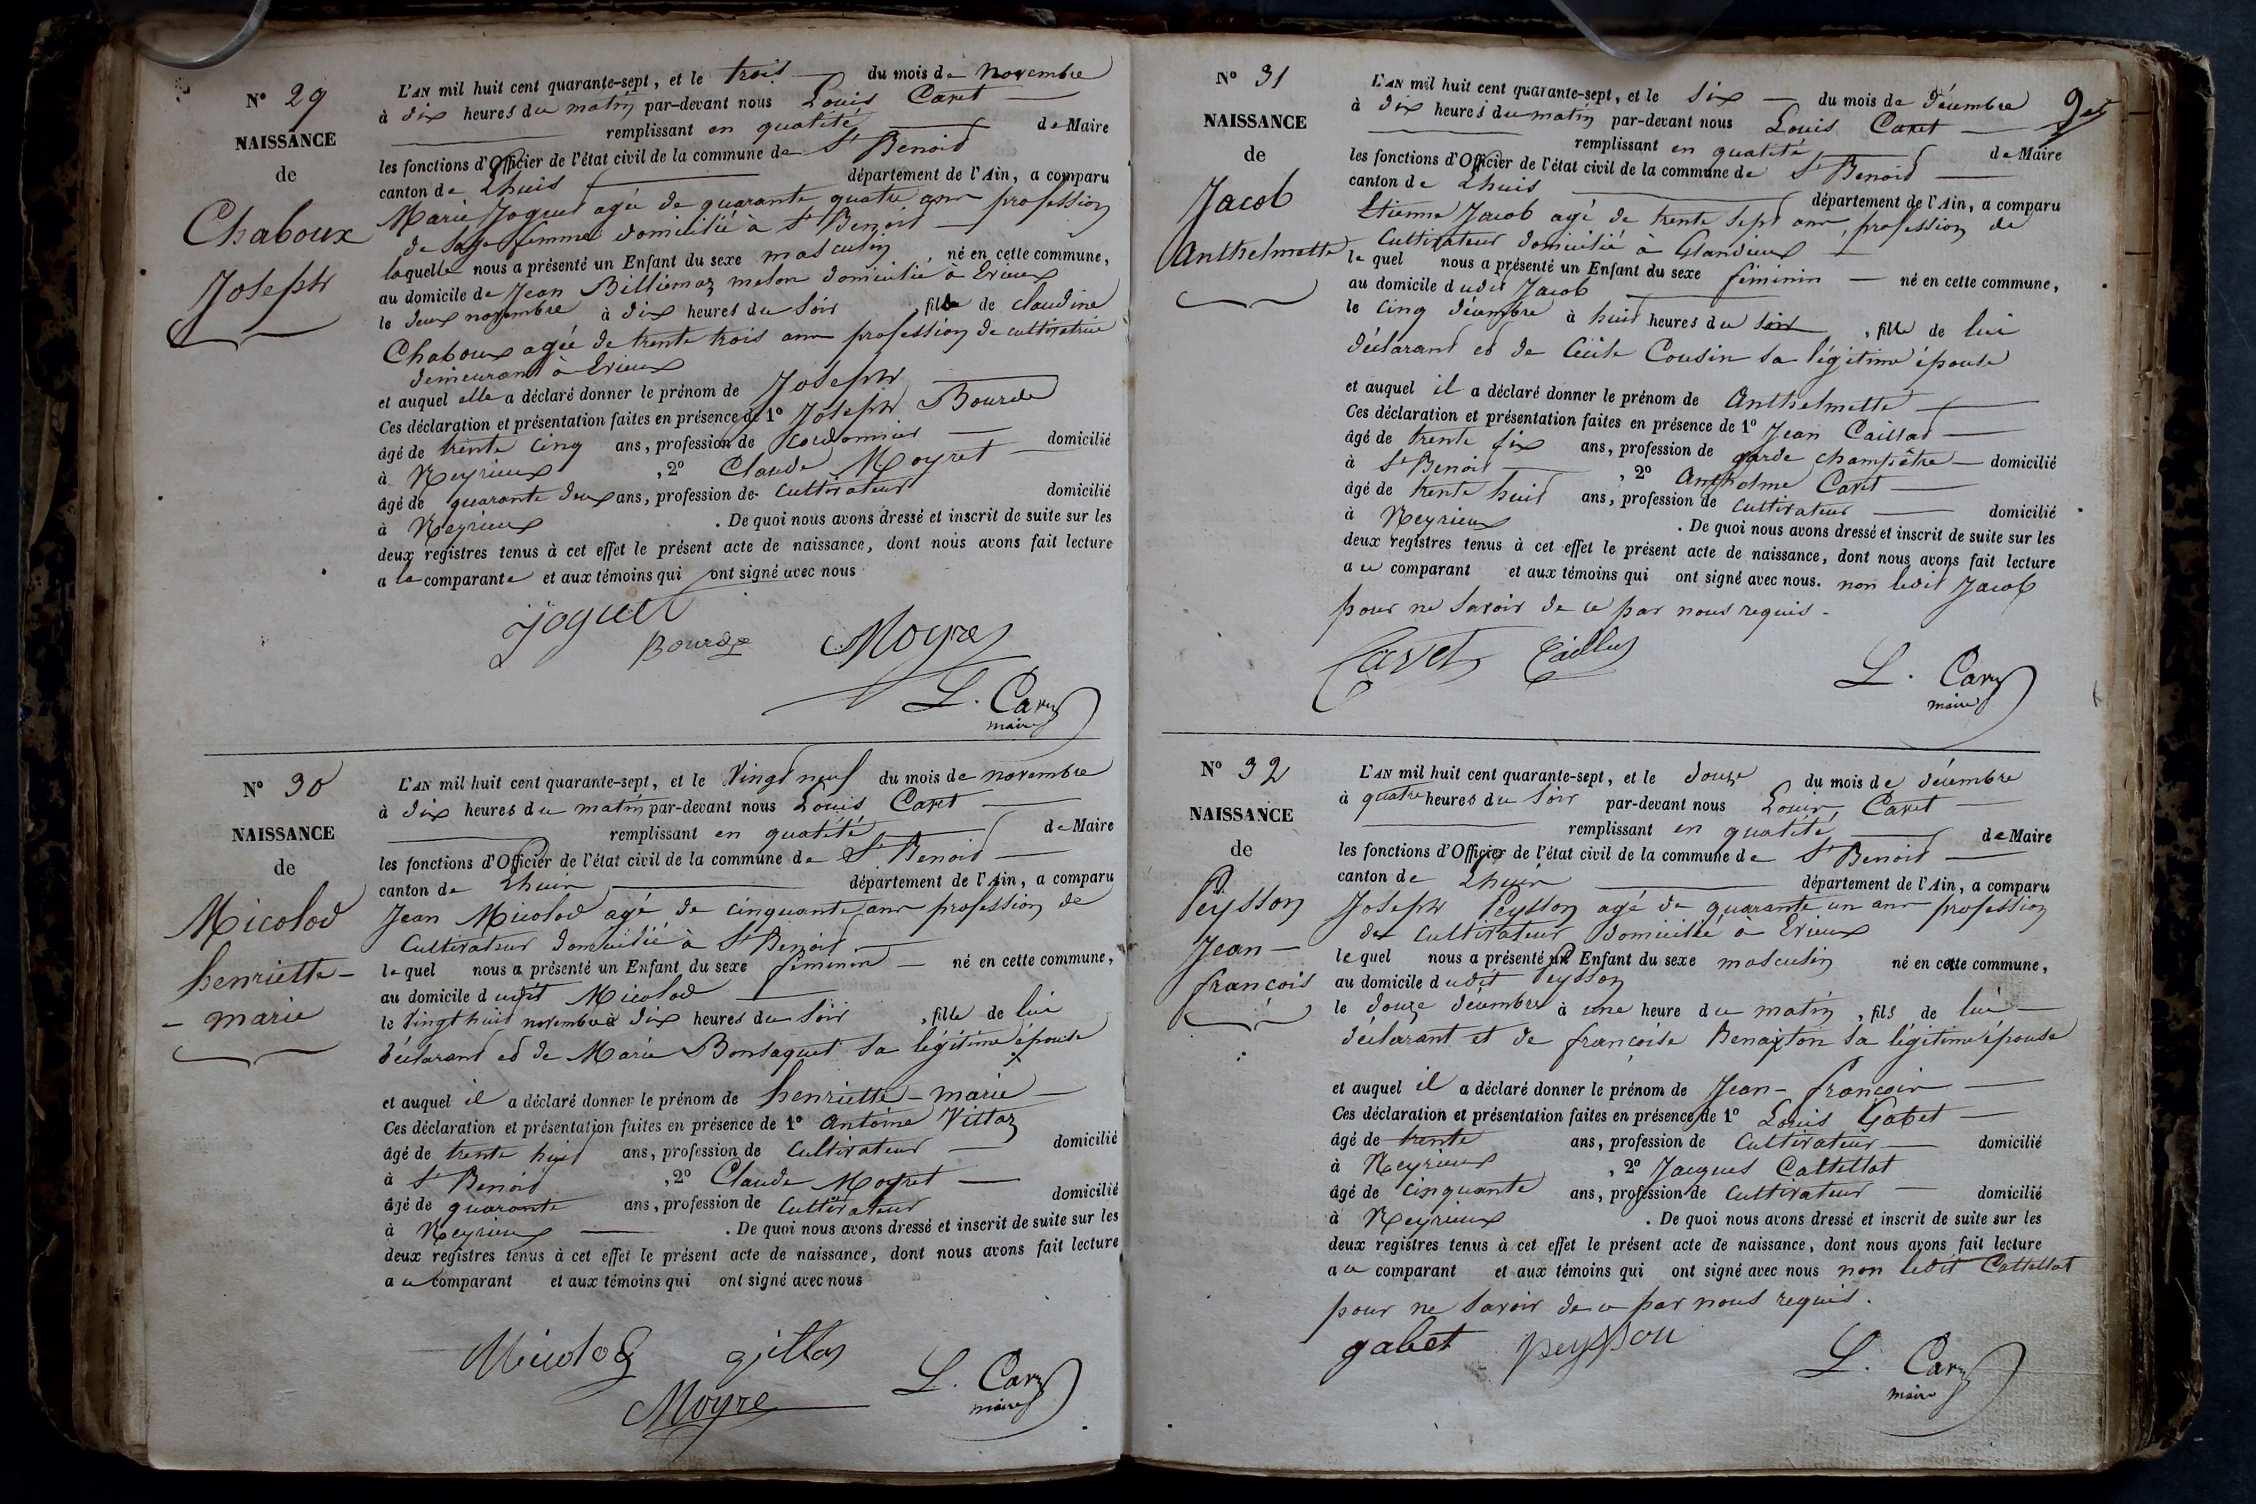 N° 29
NAISSANCE
de
Chaboux
Joseph
L'AN mil huit cent quarante-sept, et le trois du mois de novembre
à dix heures du matin par-devant nous Louis Caret
remplissant en qualité de Maire
les fonctions d'Officier de l'état civil de la commune de St Benoit
canton de Lhuis département de l'Ain, a comparu
Marie Joguet agée de quarante quatre ans profession
de sage femme domiciliée à St Benoit
laquelle nous a présenté un Enfant du sexe masculin né en cette commune,
au domicile de Jean Billiemaz melon domicilié à Evieux
le deux novembre à dix heures du soir fils de claudine
Chaboux agée de trente trois ans profession de cultivatrice
demeurant à Evieux
et auquel elle a déclaré donner le prénom de Joseph
Ces déclaration et présentation faites en présence de 1° Joseph Bourde
âgé de trente cinq ans, profession de cordonnier domicilié
à Neyrieux , 2° Claude Moyret
âgé de quarante deux ans, profession de cultivateur domicilié
à Neyrieux . De quoi nous avons dressé et inscrit de suite sur les
deux registres tenus à cet effet le présent acte de naissance, dont nous avons fait lecture
a la comparante et aux témoins qui ont signé avec nous
Joguet
Bourde Moyret
L. Caret
maire
N° 30
NAISSANCE
de
Micolod
henriette-
- marie
L'AN mil huit cent quarante-sept, et le Vingt neuf du mois de novembre
à dix heures du matin par-devant nous Louis Caret
remplissant en qualité de Maire
les fonctions d'Officier de l'état civil de la commune de St Benoit
canton de Lhuis département de l'Ain, a comparu
Jean Micolod agé de cinquante ans profession de
Cultivateur domicilié à St Benoit
lequel nous a présenté un Enfant du sexe féminin né en cette commune,
au domicile dudit Micolod
le Vingt huit novembre à dix heures du soir , fille de lui
déclarant et de Marie Bonsaquet sa légitime épouse
et auquel il a déclaré donner le prénom de henriette-marie
Ces déclaration et présentation faites en présence de 1° antoine Vittoz
âgé de trente huit ans, profession de cultivateur domicilié
à St Benoit , 2° Claude Moyret
âgé de quarante ans, profession de Cultivateur domicilié
à Neyrieux . De quoi nous avons dressé et inscrit de suite sur les
deux registres tenus à cet effet le présent acte de naissance, dont nous avons fait lecture
a ce comparant et aux témoins qui ont signé avec nous
Micolod
Moyre
L. Caret
maire
N° 31
NAISSANCE
de
Jacob
Anthelmette
L'AN mil huit cent quarante-sept, et le six du mois de décembre
à dix heures du matin par-devant nous Louis Caret
remplissant en qualité de Maire
les fonctions d'Officier de l'état civil de la commune de St Benoit
canton de Lhuis département de l'Ain, a comparu
Etienne Jacob agé de trente sept ans, profession de
Cultivateur domicilié à Glandieux
lequel nous a présenté un Enfant du sexe féminin né en cette commune,
au domicile dudit Jacob
le cinq décembre à huit heures du soir , fille de lui
déclarant et de Cécile Cousin sa légitime épouse
et auquel il a déclaré donner le prénom de Anthelmette
Ces déclaration et présentation faites en présence de 1° Jean Caillat
âgé de trente six ans, profession de garde champêtre domicilié
à St Benoit , 2° Anthelme Caret
âgé de trente huit ans, profession de cultivateur domicilié
à Neyrieux . De quoi nous avons dressé et inscrit de suite sur les
deux registres tenus à cet effet le présent acte de naissance, dont nous avons fait lecture
a ce comparant et aux témoins qui ont signé avec nous. non ledit Jacob
pour ne savoir de ce par nous requis.
Caret
L. Caret
maire
N° 32
NAISSANCE
de
Peysson
Jean-
françois
L'AN mil huit cent quarante-sept, et le douze du mois de décembre
à quatre heures du soir par-devant nous Louis Caret
remplissant en qualité de Maire
les fonctions d'Officier de l'état civil de la commune de St Benoit
canton de Lhuis département de l'Ain, a comparu
Joseph Peysson agé de quarante un ans profession
de cultivateur domicilié a Evieux
lequel nous a présenté un Enfant du sexe masculin né en cette commune,
au domicile dudit Peysson
le douze décembre à une heure du matin , fils de lui
déclarant et de françoise Benaiton sa légitime épouse
et auquel il a déclaré donner le prénom de Jean-françois
Ces déclaration et présentation faites en présence de 1° Louis Gabet
âgé de trente ans, profession de Cultivateur domicilié
à Neyrieux , 2° Jacques Cattellat
âgé de cinquante ans, profession de cultivateur domicilié
à Neyrieux . De quoi nous avons dressé et inscrit de suite sur les
deux registres tenus à cet effet le présent acte de naissance, dont nous avons fait lecture
a ce comparant et aux témoins qui ont signé avec nous non ledit Cattellat
pour ne savoir de ce par nous requis.
gabet peysson
L. Caret
maire